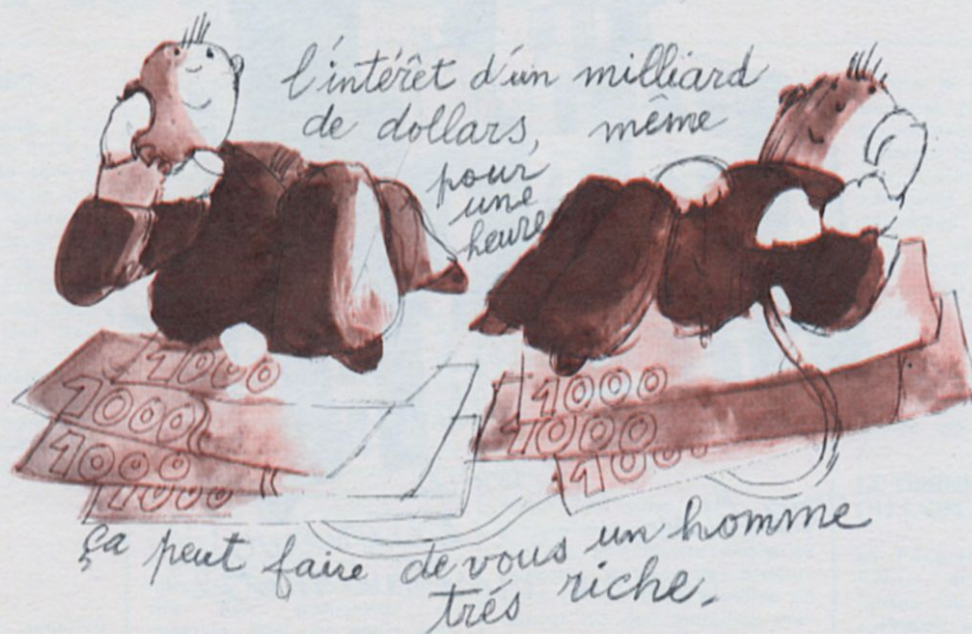 l'intérêt d'un milliard
de dollars, même
pour
une
heure
1000
1000
1000
1000
1000
1000
1000
ça peut faire de vous un homme
trés riche.